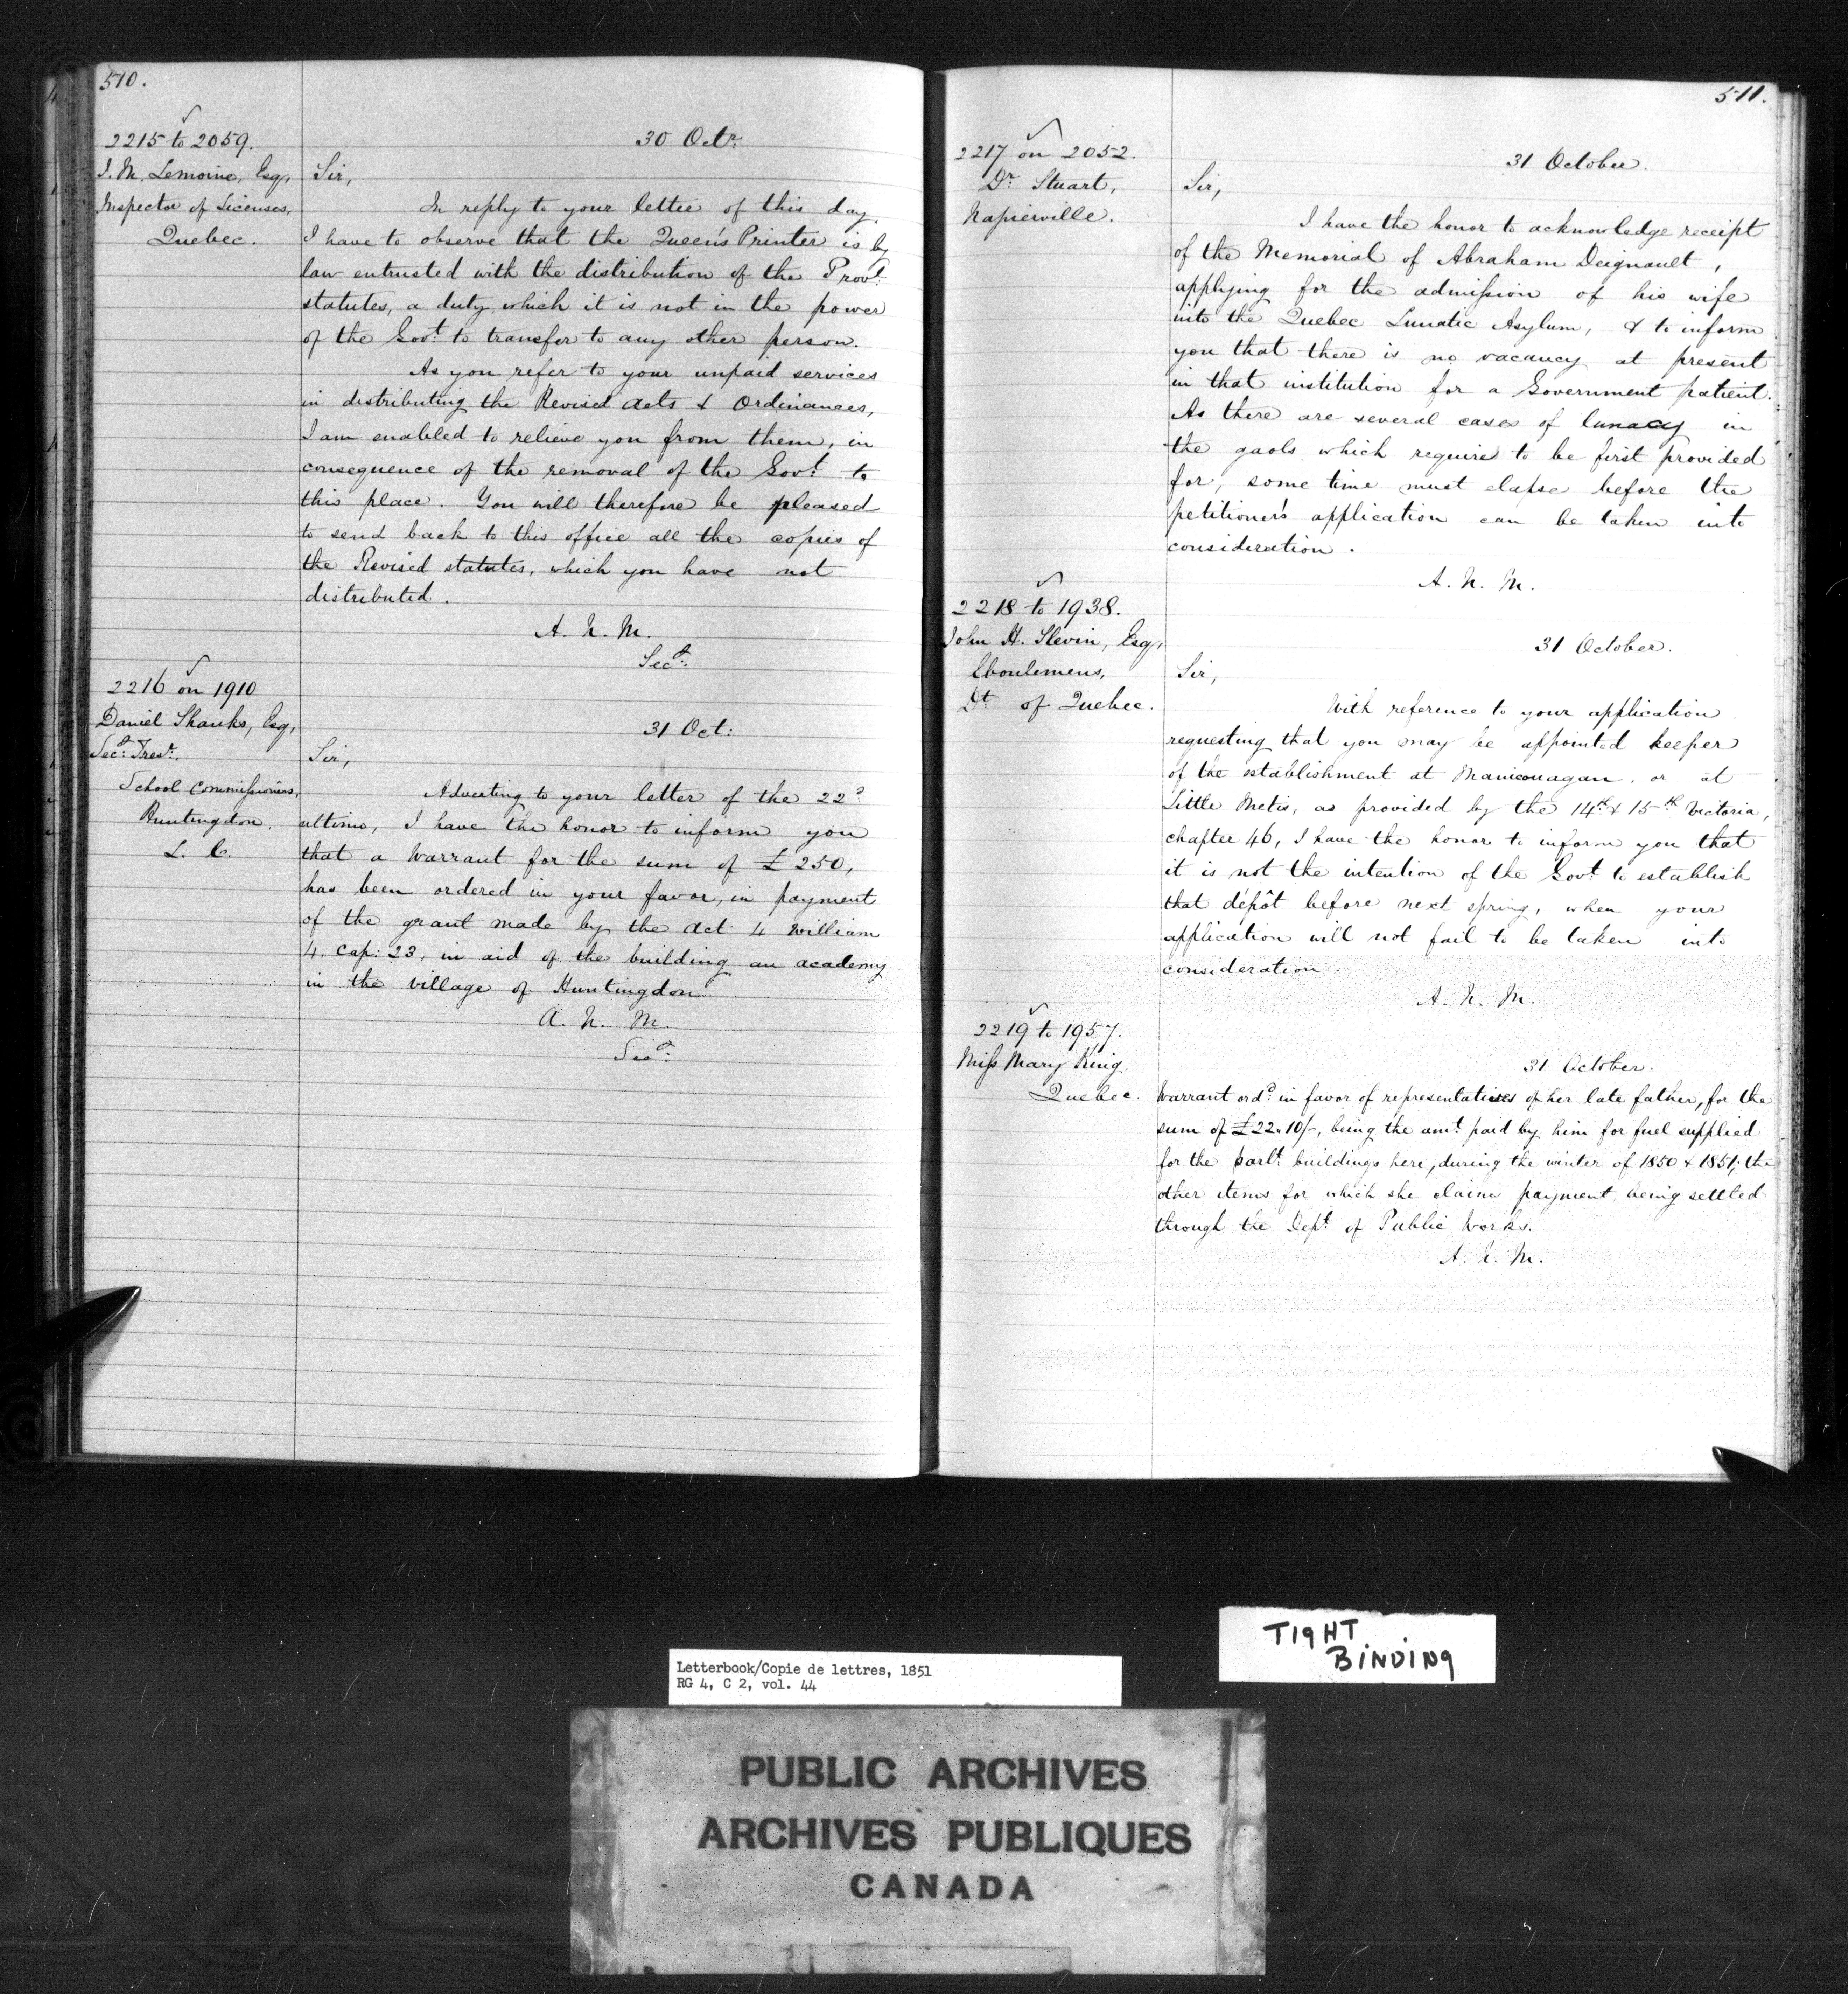 510.
2215 to 2059.
J. M. Lemoine, Esq,
Inspector of Licenses,
Quebec.
30 Octr.
Sir,
In reply to your letter of this day,
I have to observe that the Queen's Printer is by
law entrusted with the distribution of the Provl.
statutes, a duty which it is not in the power
of the Govt. to transfer to any other person.
As you refer to your unpaid services
in distributing the Revised Acts & Ordinances,
I am enabled to relieve you from them, in
consequence of the removal of the Govt. to
this place. You will therefore be pleased
to send back to this office all the copies of
the Revised statutes, which you have not
distributed.
A. N. M.
Secy.
2216 on 1910
Daniel Shanks, Esq,
Secy. Trest.
School Commissioners,
Huntingdon,
L. C.
31 Oct:
Sir,
Adverting to your letter of the 22d.
ultimo, I have the honor to inform you
that a Warrant for the sum of £250,
has been ordered in your favor, in payment
of the grant made by the Act 4 William
4, Cap: 23, in aid of the building an academy
in the village of Huntingdon
A. N. M.
Secy.
511.
2217 on 2052.
Dr. Stuart,
Napierville.
31 October.
Sir,
I have the honor to acknowledge receipt
of the Memorial of Abraham Deignault,
applying for the admission of his wife
into the Quebec Lunatic Asylum, & to inform
you that there is no vacancy at present
in that institution for a Government patient.
As there are several cases of lunacy in
the gaols which require to be first provided
for, some time must elapse before the
petitioner's application can be taken into
consideration.
A. N. M.
2218 to 1938.
John H. Slevin, Esq,
Eboulemens,
Dt. of Quebec.
31 October.
Sir,
With reference to your application
requesting that you may be appointed keeper
of the establishment at Manicouagan, or at
Little Metis, as provided by the 14th. & 15th. Victoria,
chapter 46, I have the honor to inform you that
it is not the intention of the Govt. to establish
that dépôt before next spring, when your
application will not fail to be taken into
consideration.
A. N. M.
2219 to 1957.
Miss Mary King
Quebec.
31 October.
Warrant ord. in favor of representatives of her late father, for the
sum of £22.10/-, being the amt. paid by him for fuel supplied
for the Parlt. buildings here, during the winter of 1850 & 1851; the
other items for which she claims payment, being settled
through the Dept. of Public Works.
A. N. M.
TIGHT
BINDING
Letterbook/Copie de lettres, 1851
RG 4, C 2, vol. 44
PUBLIC ARCHIVES
ARCHIVES PUBLIQUES
CANADA